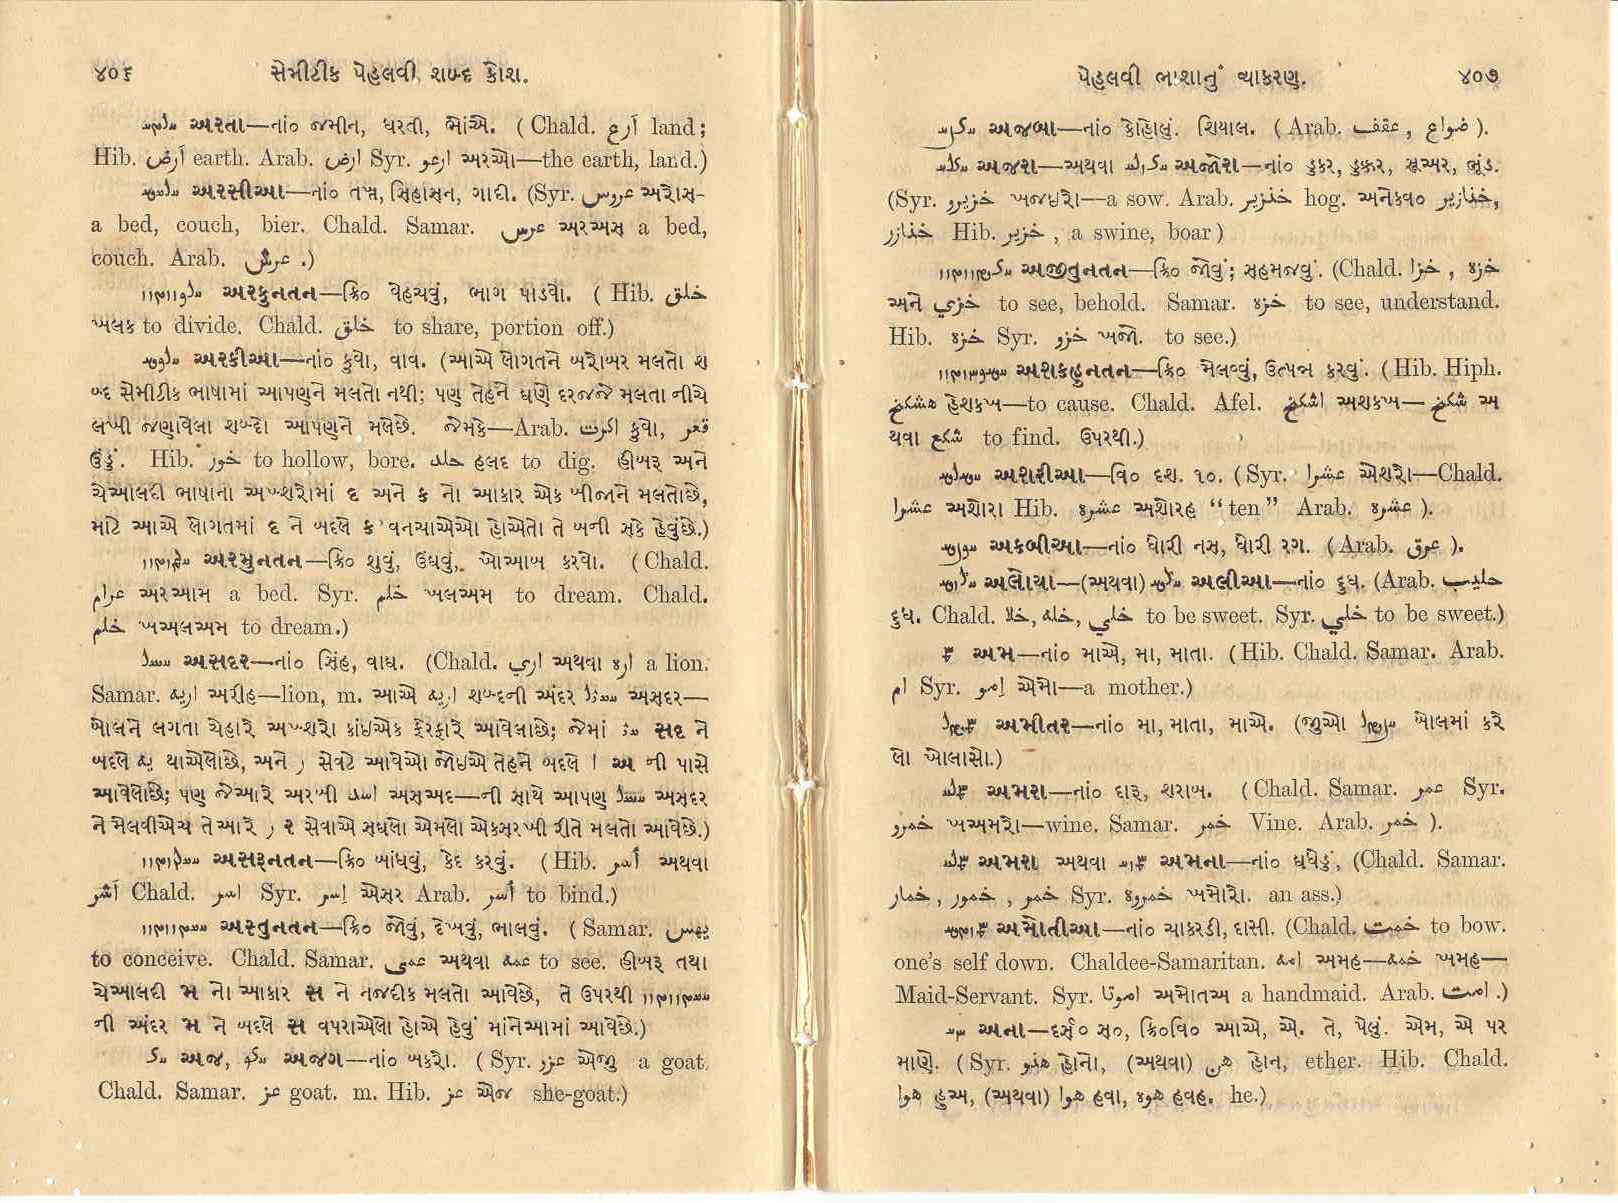 ૪૦૬ સેમીટીક પેહલવી શબ્દ કોશ.
અરતા—નાં૦ જમીન, ધરતી, ભોંએ. (Chald. أرع land;
Hib. أرض earth. Arab. ارض Syr. ارعو અરએો—the earth, land.)
અરસીઆ—નાં૦ તખ્ત, સિંહાસન, ગાદી. (Syr. عروس અરોસ-
a bed, couch, bier. Chald. Samar. عرس અરઅસ a bed,
couch. Arab. عرش.)
અરકુનતન—ક્રિ૦ વેહચવું, ભાગ પાડવો. (Hib. خلق
ખલક to divide. Chald. خلق to share, portion off.)
અરકીઆ—નાં૦ કુવો, વાવ. (આએ લોગતને બરોબર મલતો શ
બ્દ સેમીટીક ભાષામાં આપણને મલતો નથી; પણ તેહને ઘણે દરજજે મલતા નીચે
લખી જણાવેલા શબ્દો આપણને મલેછે. જેમકે—Arab. اكرت કુવો, قعر
ઉંડું. Hib. خور to hollow, bore. حلد હલદ to dig. હીબરૂ અને
ચેઆલદી ભાષાના અખ્શરોમાં દ અને ક નો આકાર એક બીજાને મલતોછે,
માટે આએ લોગતમાં દ ને બદલે ક વનચાએએો હોએતો તે બની સકે હેવુંછે.)
અરમુનતન—ક્રિ૦ શુવું, ઉંઘવું, ખોઆબ કરવો. (Chald.
عرام અરઆમ a bed. Syr. خلم ખલઅમ to dream. Chald.
خلم ખઅલઅમ to dream.)
અસદર—નાં૦ સિંહ, વાઘ. (Chald. اري અથવા اره a lion.
Samar. اريه અરીહ—lion, m. આએ اريه શબ્દની અંદર અસદર—
બોલને લગતા ચેહારે અખ્શરો કાંઇએક ફેરફારે આવેલાછે; જેમાં સદ ને
બદલે يه થાએલોછે, અને ر સેવટે આવેએો જોઇએ તેહને બદલે ا અ ની પાસે
આવેલોછે; પણ જેઆરે અરબી اسد અસઅદ—ની સાથે આપણુ અસદર
ને મેલવીએચ તેઆરે ر ર સેવાએ સઘલો એમલો એકસરખી રીતે મલતો આવેછે.)
અસરૂનતન—ક્રિ૦ બાંધવું, કેદ કરવું. (Hib. أسر અથવા
أشر Chald. اسر Syr. إسر એસર Arab. أسر to bind.)
અસ્તુનતન—ક્રિ૦ જોવું, દેખવું, ભાલવું. (Samar.
to conceive. Chald. Samar. عمي અથવા عمه to see. હીબરૂ તથા
ચેઆલદી મ નો આકાર સ ને નજદીક મલતો આવેછે, તે ઉપરથી
ની અંદર મ ને બદલે સ વપરાએલો હોએ હેવું માંનેઆમાં આવેછે.)
અજ, અજગ—નાં૦ બકરો. (Syr. عزر એજી a goat.
Chald. Samar. عز goat. m. Hib. عز એજ she-goat.)
પેહલવી ભાશાનું વ્યાકરણ. ૪૦૭
અજબા—નાં૦ કોહોલું. શિયાલ. (Arab. ضواع, عقف).
અજરા—અથવા અજોરા—નાં૦ ડુકર, ડુક્કર, સૂઅર, ભૂંડ.
(Syr. خزيرو ખજઇરો—a sow. Arab. خنزير hog. અનેકવ૦ خنازير,
خنازر Hib. خزير, a swine, boar)
અજીતુનતન—ક્રિ૦ જોવું; સહમજવું. (Chald. خزا, خزه
અને خزي to see, behold. Samar. خزه to see, understand.
Hib. خزه Syr. خزو ખજો. to see.)
અશકહુનતન—ક્રિ૦ મેલવ્વું, ઉત્પન્ન કરવું. (Hib. Hiph.
هشكخ હેશકખ—to cause. Chald. Afel. اشكخ અશકખ— شكخ અ
થવા شكع to find. ઉપરથી.)
અશરીઆ—વિ૦ દશ. ૧૦. (Syr. عشرا એશરો—Chald.
عشرا અશોરા Hib. عشره અશોરહ “ten” Arab. عشره).
અકબીઆ—નાં૦ ધોરી નસ, ધોરી રગ. (Arab. عرق).
અલોયા—(અથવા) અલીઆ—નાં૦ દુધ. (Arab. حليب
દુધ. Chald. خلا, خله, خلي to be sweet. Syr. خلي to be sweet.)
અમ—નાં૦ માએ, મા, માતા. (Hib. Chald. Samar. Arab.
ام Syr. إمو એમો—a mother.)
અમીતર—નાં૦ મા, માતા, માએ. (જીએો બોલમાં કરે
લો ખોલાસો.)
અમરા—નાં૦ દારૂ, શરાબ. (Chald. Samar. عمر Syr.
خمرو ખઅમરો—wine. Samar. خمر Vine. Arab. خمر).
અમરા અથવા અમના—નાં૦ ઘધેડું, (Chald. Samar.
خمر, خمور, خمار Syr. خمروه ખમોરો. an ass.)
અમોતીઆ—નાં૦ ચાકરડી, દાસી. (Chald. خمت to bow.
one's self down. Chaldee-Samaritan. امه અમહ—خمه ખમહ—
Maid-Servant. Syr. اموتا અમોતઅ a handmaid. Arab. امت.)
અના—દર્સ૦ સ૦, ક્રિ૦વિ૦ આએ, એ. તે, પેલું. એમ, એ પર
માણે. (Syr. هنو હોનો, (અથવા) هن હોન, ether. Hib. Chald.
هوا હુઅ, (અથવા) هوا હવા, هوه હવહ. he.)